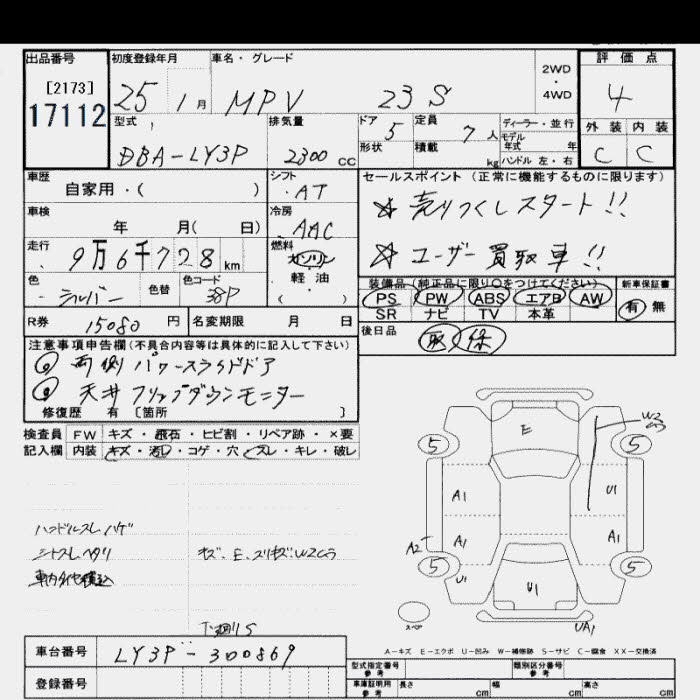 出品番号 初度登録年月 車名・グレード 評価点
[2173] 2WD
17112 25 1月 MPV 23S ・ 4
4WD
型式 排気量 ドア 5 定員 7人 ディーラー・並行 外装 内装
モデル
DBA-LY3P 2300cc 形状 積載 kg 年式 年 C C
ハンドル 左・右
車歴 シフト セールスポイント (正常に機能するものに限ります)
自家用・( ) AT ☆ 売りつくしスタート!!
車検 冷房
年 月( 日) AAC ☆ ユーザー買取車!!
走行 燃料
9万6千728km ガソリン
軽・油
( )
色 色替 色コード 装備品(純正品に限り○をつけてください) 新車保証書
シルバー 38P PS PW ABS エアB AW 有 無
SR ナビ TV 本革
R券 15080円 名変期限 月 日 後日品 取 保
注意事項申告欄(不具合内容等は具体的に記入して下さい)
両側パワースライドドア
天井フリップダウンモニター
修復歴 有 〔箇所 〕
検査員 FW キズ・飛石・ヒビ割・リペア跡・×要
記入欄 内装 キズ・汚レ・コゲ・穴・スレ・キレ・破レ
E W2
5 5
A1 U1
A1 A1
A2
5 U1 U1 5
スペア UA1
ハンドルスレ ハゲ
シートスレ ヘタリ
キズ、E、スリキズ
下廻りS
A-キズ E-エクボ U-凹み W-補修跡 S-サビ C-腐食 XX-交換済
車台番号 LY3P-300869
型式指定番号 参考 類別区分番号 参考
登録番号 車庫証明用 参考 長さ cm 幅 cm 高さ cm